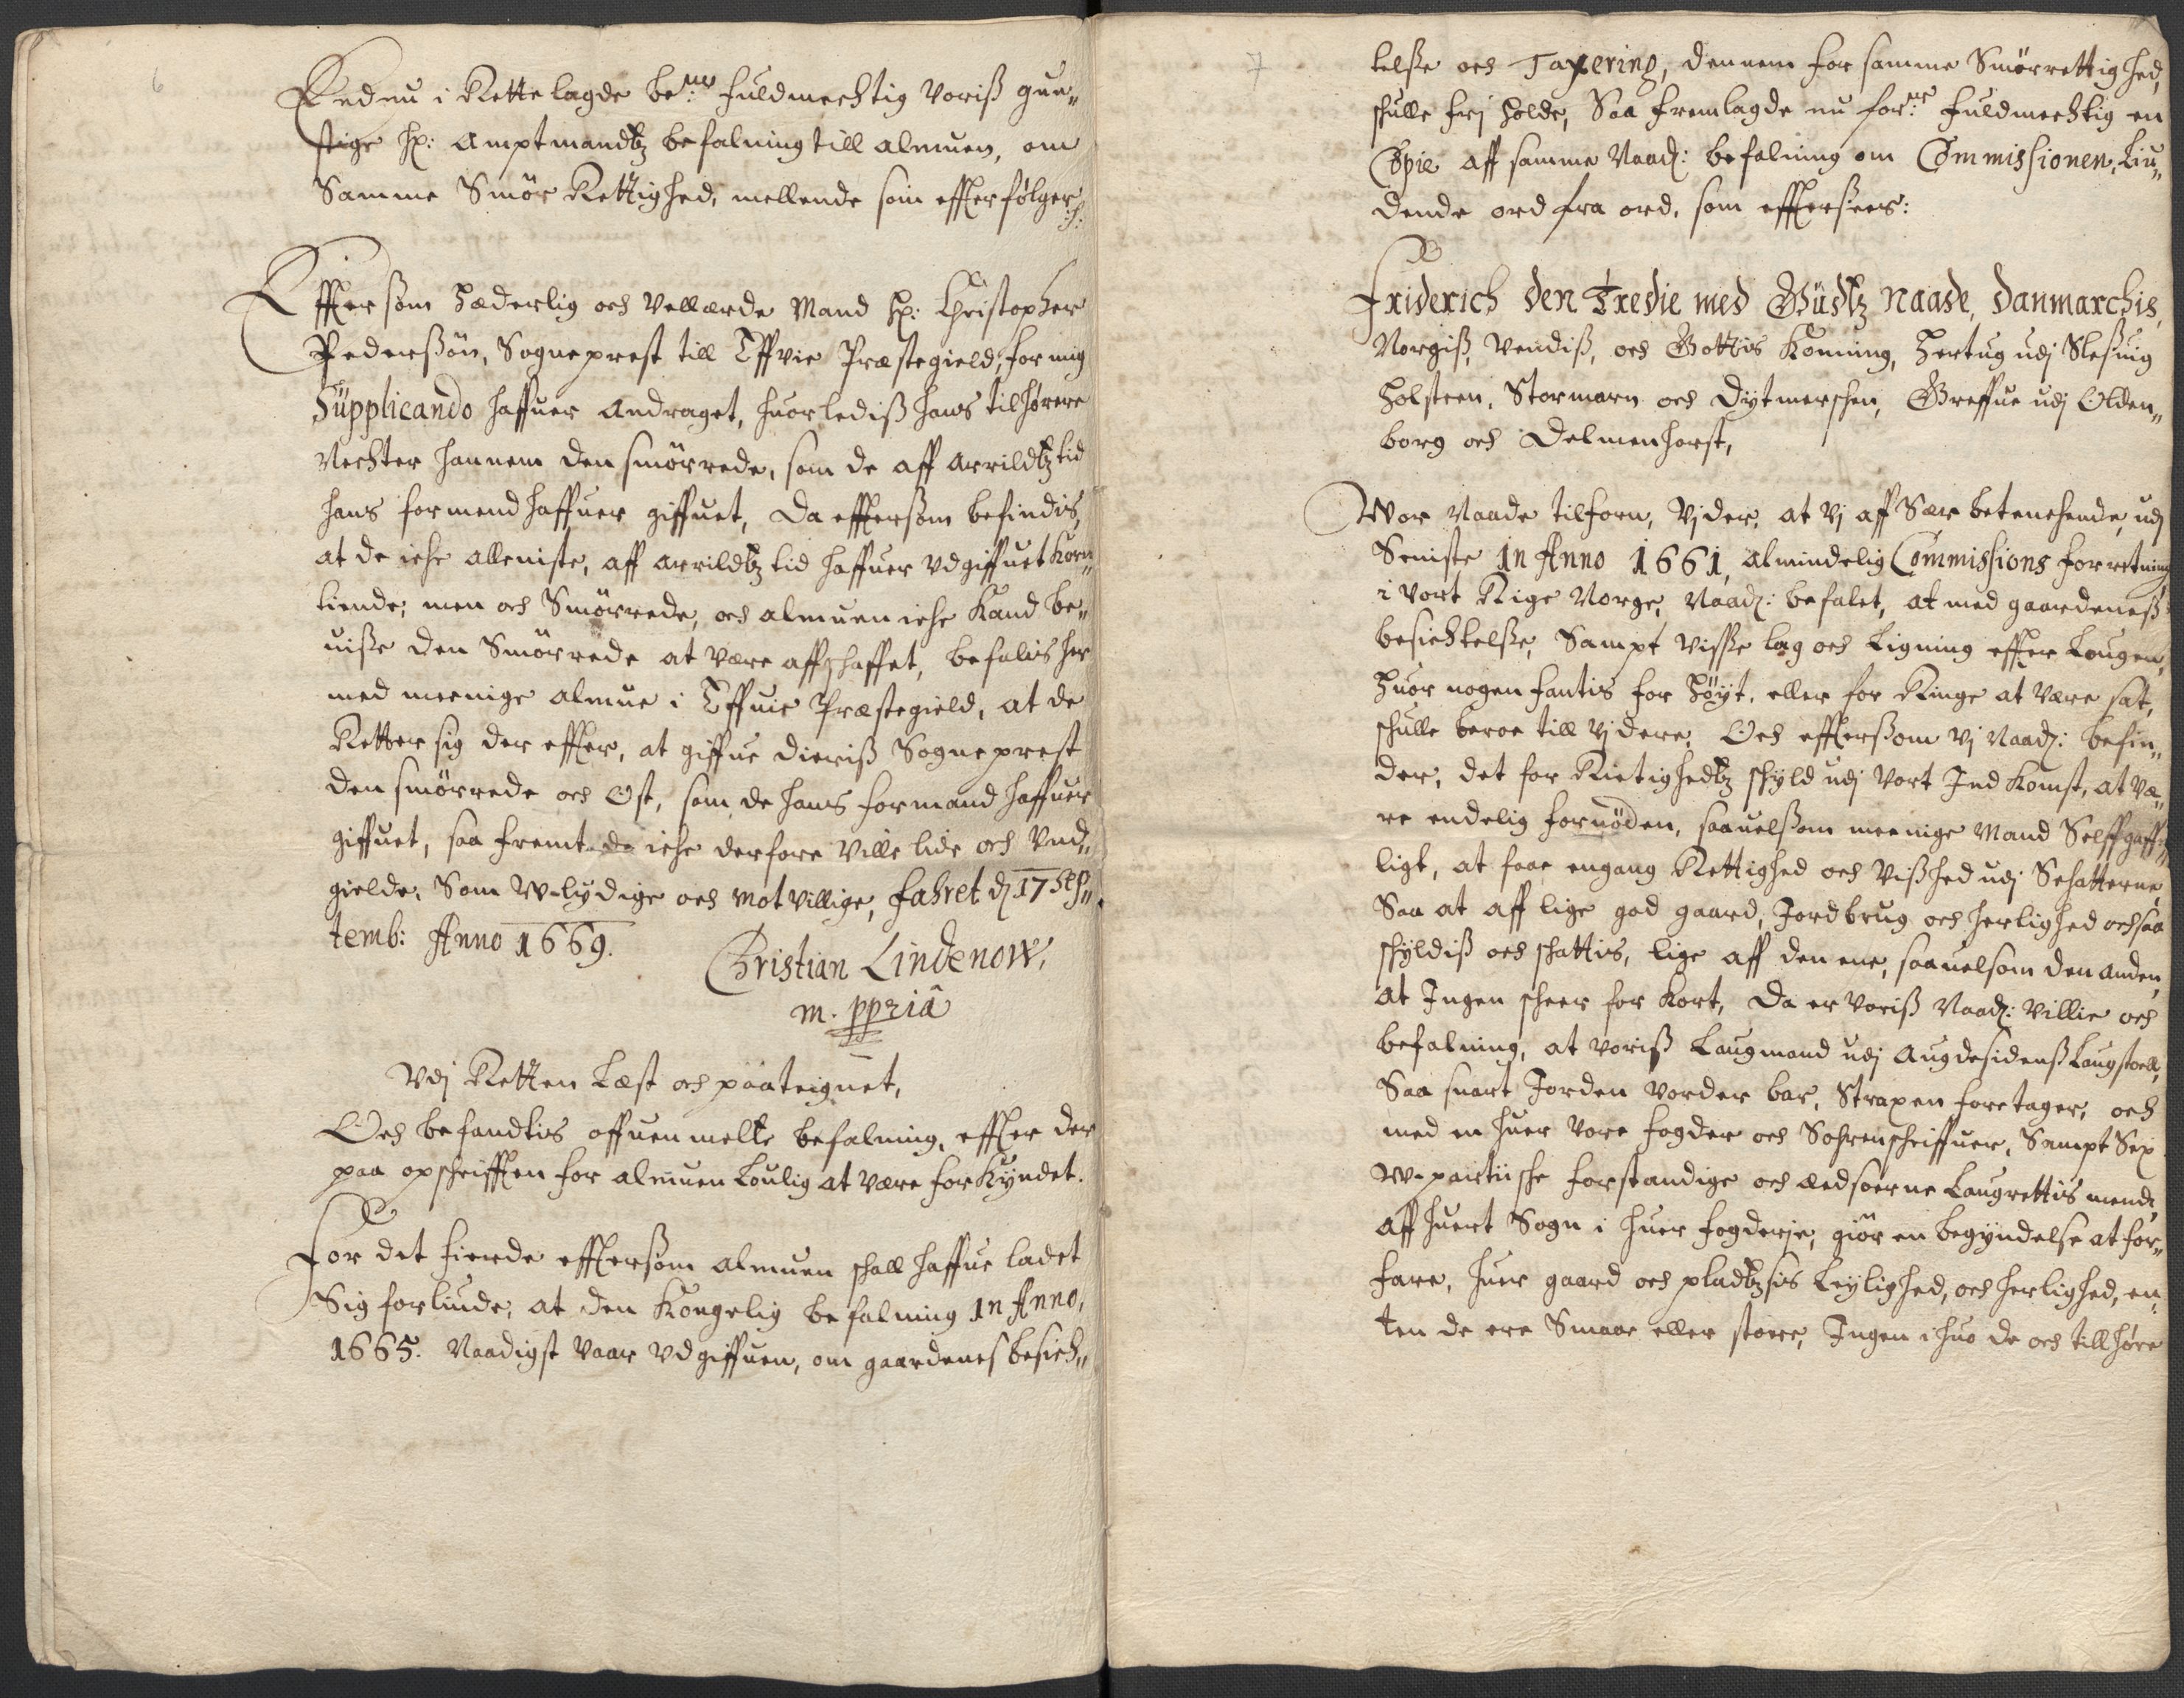 6
Endnu i Rette lagde be:te fuldmechtig voriß gun„
stige Hr: Amptmandtz befalning till almuen, om
Samme Smør Rettighed, mellende som effterfølger
Effter som Hæderlig och Vellærde Mand Hr: Christopher
Pederßøn, Sogneprest till Effvie Præstegield, for mig
Süpplicando haffuer andraget, huorlediß hans tilhørere
Negter hannem den smørrede, som de aff arrildtz tid
hans formend haffuer giffuet, Da efftersom befindis,
at de iche alleniste, aff arrildtz tid haffuer udgiffuet Korn„
tiende, men och Smørrede, och almuen iche kand be„
uiße den Smørrede at være affschaffet, befalis her
med meenige almue i Effuie Præstegield, at de
Retter sig der effter, at giffue dieriß Sogneprest
den smørrede och Ost, som de hans formand haffuer
giffuet, saa fremt de iche derfore ville lide och Und„
gielde, Som W-lydige och Motvillige, Fahret d: 17 Sep„
temb: Anno 1669.
Christian Lindenow,
m. ppriâ
Udj Retten Læst och paateignet,
Och befandtis offuenmelte befalning, effter der
paa opschrifften for almuen Loulig at være forkyndet.
For det fierde efftersom almuen schall haffue ladet
Sig forliude, at den Kongelig befalning in Anno,
1665. Naadigst Vaar Udgiffuen, om gaardenes besich„
7
telße och Taxering, dennem for samme Smørrettighed,
schulle frj holde, Saa fremlagde nu for:ne fuldmechtig en
Copie aff samme Naad: befalning om Commissionen, Liu„
dende ord fra ord, som effterseer:
Friderich den Tredie med Güdtz Naade, Danmarchis,
Norgiß, Vendiß, och Gottis Konning, Hertug udj Sleßuig
Holsteen, Stormarn och Dytmerschen, Greffue udj Olden„
borg och Delmenhorst,
Wor Naade tilforn, Vjder, at Vj aff Sær betenchende, udj
Seniste in Anno 1661, almindelig Commissions forretning
i Vort Rige Norge, Naad: befalet, at med gaardeneß
besichtelße, Sampt Viße lag och Ligning effter Lougen,
Huor nogen fantis for Høyt, eller for Ringe at Være sat,
schulle beroe till Vjdere, Och effterßom Vj Naad: befin„
der, det for Rictighedtz schyld udj Vort Jndkomst, at Væ„
re endelig fornøden, saauelßom meenige Mand Selff gaff„
ligt, at faae engang Rettighed och Vißhed udj Schatterne,
Saa at aff lige god gaard, Jordbrug och herlighed ochsaa
schyldiß och schattis, lige aff den ene, saauelsom den anden,
at Jngen scheer for kort, Da er voriß Naad: Villie och
befalning, at voriß Laugmand udj Augdesidenß Laugstoell,
Saa snart Jorden vorder bar, Straxen foretager, och
med en huer Vore fogder och Sohrenschriffuer, Sampt Sex
W-partische forstandige och Eedsoerne Laugrettis mend,
aff huert Sogn i huer fogderje, giør en begyndelse at for„
fare, huer gaard och pladtzsis Leylighed, och herlighed, en„
ten de ere Smaae eller store, Jngen i huo de och tillhøre